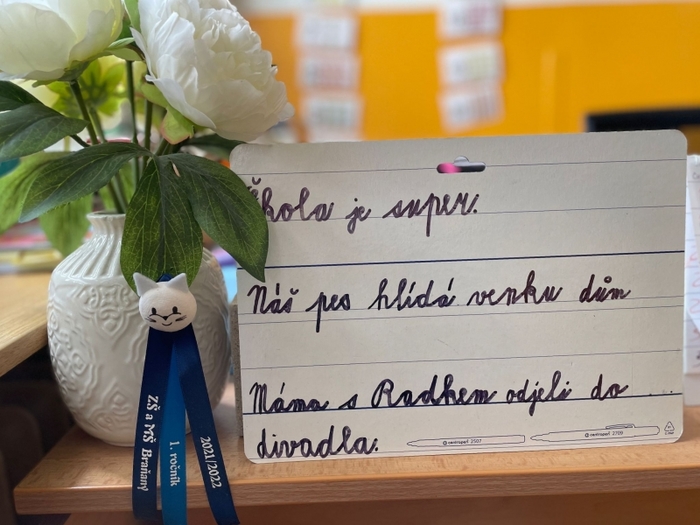 Škola je super.
Náš pes hlídá venku dům
Máma s Radkem odjeli do
divadla.
centropen 2507
centropen 2709
ZŠ a MŠ Braňany
1. ročník
2021/2022